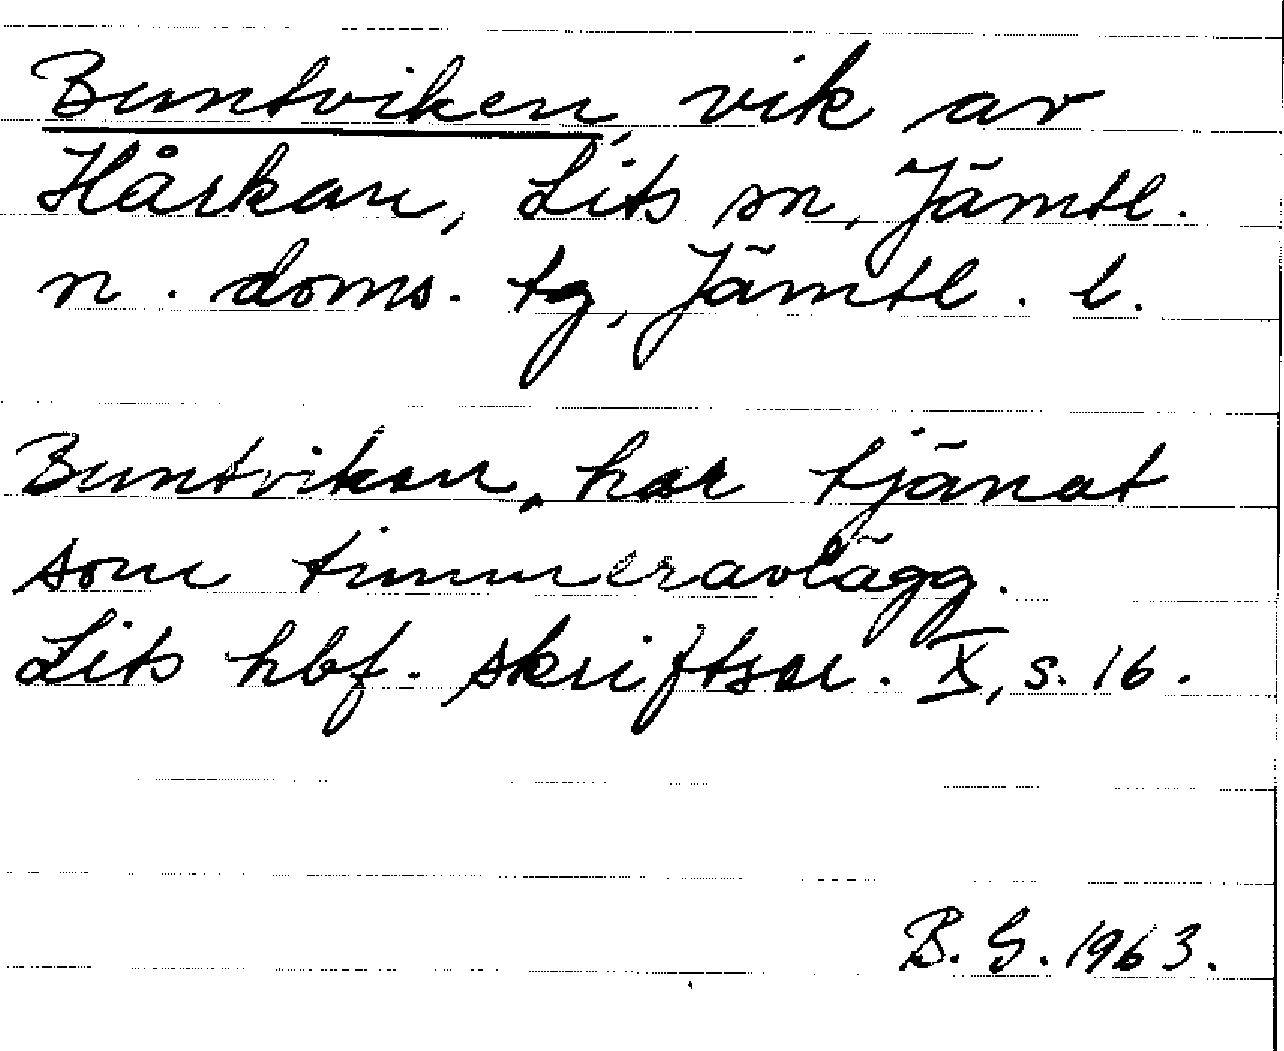 Buntviken, vik av
Hårkan, Lits sn, Jämtl.
n. doms. tg, Jämtl. l.
Buntviken har tjänat
som timmeravlägg.
Lits hbf. skriftser. X, s. 16.
B. G. 1963.